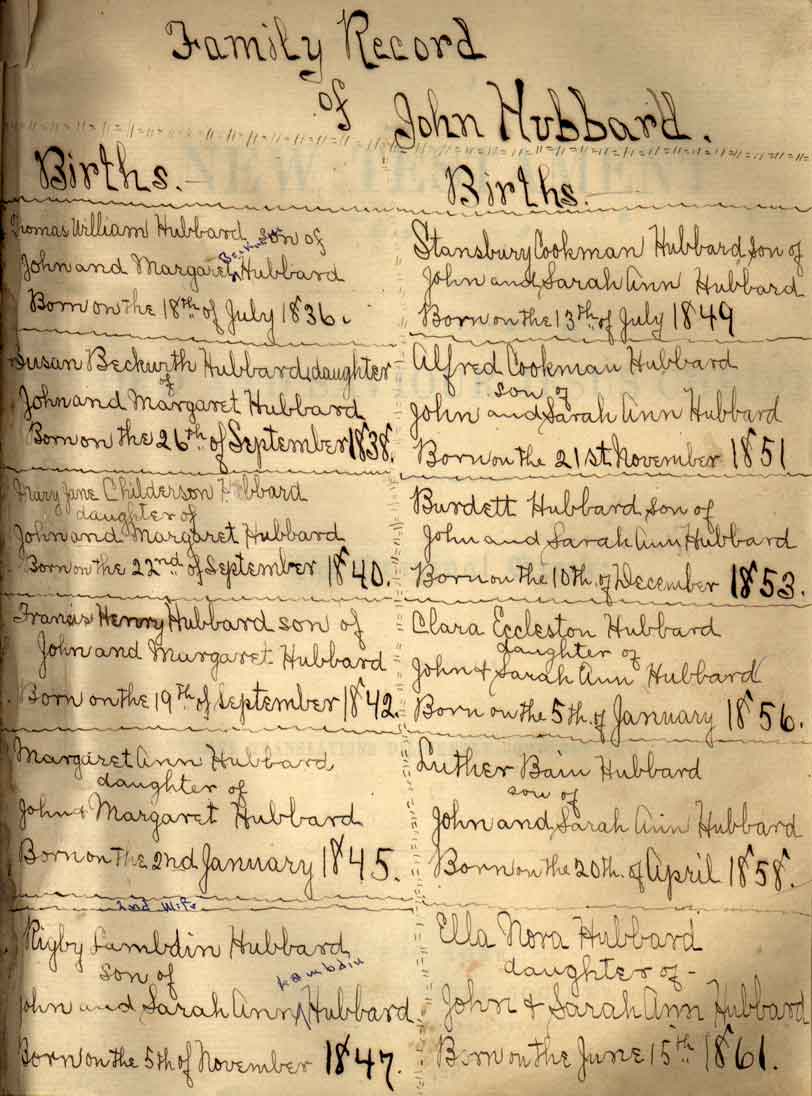 Family Record
of John Hubbard.
Births.
Thomas William Hubbard son of
John and Margaret Hubbard
Born on the 18th of July 1836.
Susan Beckwith Hubbard, daughter
of
John and Margaret Hubbard
Born on the 26th of September 1838.
Mary Jane Childerson Hubbard
daughter of
John and Margaret Hubbard
Born on the 22nd of September 1840.
Francis Henry Hubbard son of
John and Margaret Hubbard
Born on the 19th of September 1842.
Margaret Ann Hubbard
daughter of
John + Margaret Hubbard
Born on the 2nd January 1845.
2nd Wife
Rigby Lambdin Hubbard,
son of
Lambdin
John and Sarah Ann Hubbard
Born on the 5th of November 1847.
Births.
Stansbury Cookman Hubbard, son of
John and Sarah Ann Hubbard
Born on the 13th of July 1849
Alfred Cookman Hubbard
son of
John and Sarah Ann Hubbard
Born on the 21st November 1851
Burdett Hubbard, son of
John and Sarah Ann Hubbard
Born on the 10th of December 1853.
Clara Eccleston Hubbard
daughter of
John + Sarah Ann Hubbard
Born on the 5th of January 1856.
Luther Bain Hubbard
son of
John and Sarah Ann Hubbard
Born on the 20th of April 1858.
Ella Nora Hubbard
daughter of -
John + Sarah Ann Hubbard
Born on the June 15th 1861.